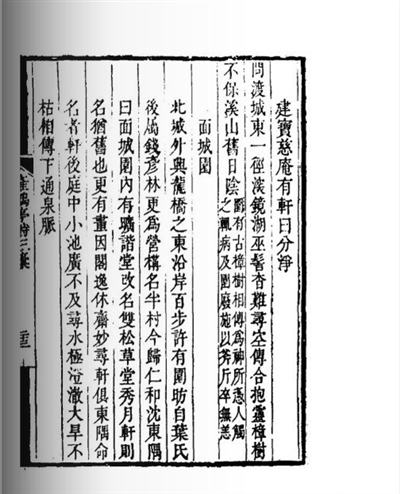 建寶慈庵有軒曰分淨
問渡城東一徑深鏡湖巫髻杳難尋空傳合抱靈樟樹
不保溪山舊日陰園有古樟樹相傳為神所憑人觸
之輒病及園廢施以斧斤卒無恙
面城園
北城外興龍橋之東沿岸百步許有園助自葉氏
後歸錢彥林更為營構名半村今歸仁和沈東隅
曰面城園內有曠諧堂改名雙松草堂秀月軒則
名猶舊也更有董因閣逸休齋妙尋軒俱東隅命
名者軒後庭中小池廣不及尋水極澄澈大旱不
枯相傳下通泉脈